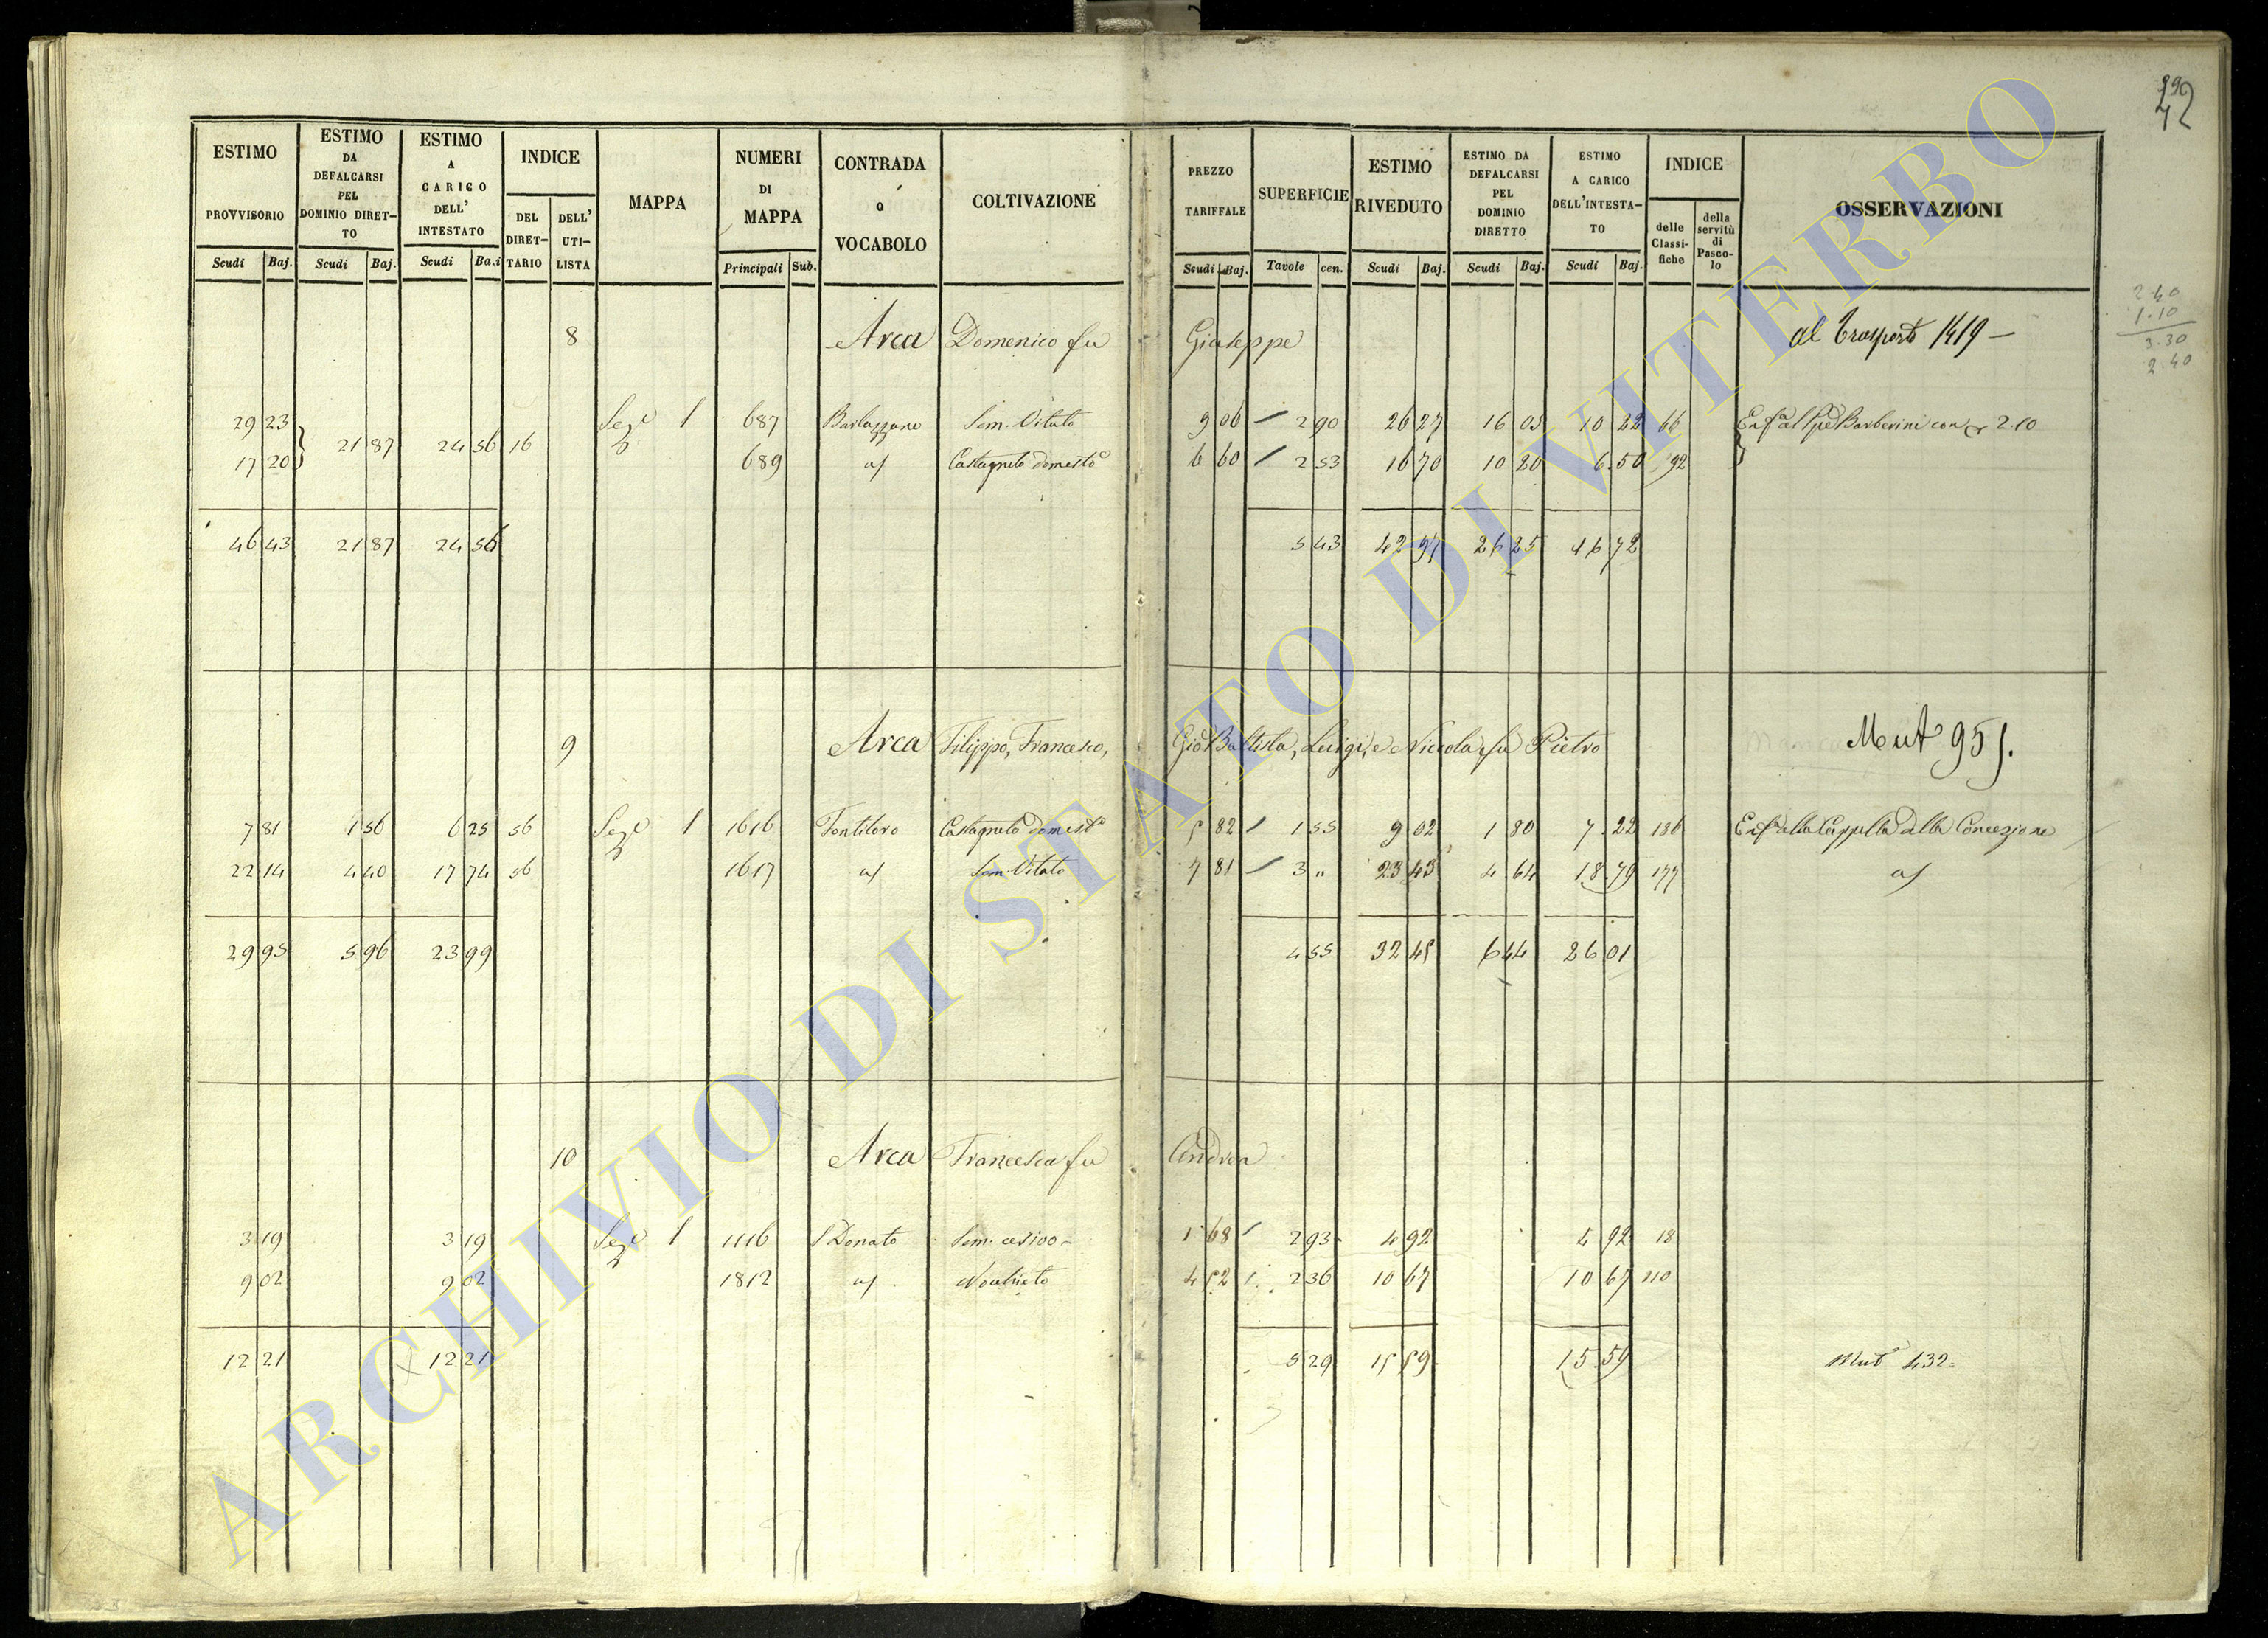 42
ESTIMO PROVVISORIO
ESTIMO DA DEFALCARSI PEL DOMINIO DIRET- TO
ESTIMO A CARICO DELL' INTESTATO
INDICE
DEL DIRET- TARIO
DELL' UTI- LISTA
MAPPA
NUMERI DI MAPPA
CONTRADA o VOCABOLO
COLTIVAZIONE
PREZZO TARIFFALE
SUPERFICIE
ESTIMO RIVEDUTO
ESTIMO DA DEFALCARSI PEL DOMINIO DIRETTO
ESTIMO A CARICO DELL'INTESTA- TO
INDICE
delle Classi- fiche
della servitù di Pasco- lo
OSSERVAZIONI
Scudi Baj. Scudi Baj. Scudi Baj. Principali Sub. Scudi Baj. Tavole cen. Scudi Baj. Scudi Baj. Scudi Baj.
2.40
1.10
3.30
2.40
8 Arca Domenico fu Giuseppe al Trasporto 1419
29 23 Seze 1 687 Sem. Vitato 9 06 2 90 26 27 16 05 10 22 66 2.10
21 87 24 56 16
17 20 689 a/ Castagneto domesto 6 60 2 53 16 70 10 20 6.50 92
46 43 21 87 24 56 5 43 42 97 26 25 16 72
9 Arca Filippo, Francesco, Gio Battista, Luigi, e Niccola fu Pietro Mut 951.
7 81 1 56 6 25 56 Seze 1 1616 Fontiloro Castagneto domesto 5 82 1 55 9 02 1 80 7.22 136 Enfa alla Cappella della Concezione
22 14 4 40 17 74 56 1617 a/ Sem. Vitato 7 81 3 " 23 43 4 64 18.79 177 a/
29 95 5 96 23 99 4 55 32 45 6 44 26 01
10 Arca Francesca fu Andrea
3 19 3 19 Seze 1 1116 S Donato Sem. 1 68 2 93 4 92 4 92 18
9 02 9 02 1812 a/ Nochieto 4 52 2 36 10 67 10 67 110
12 21 12 21 5 29 15 59 15.59 Mut 432
ARCHIVIO DI STATO DI VITERBO